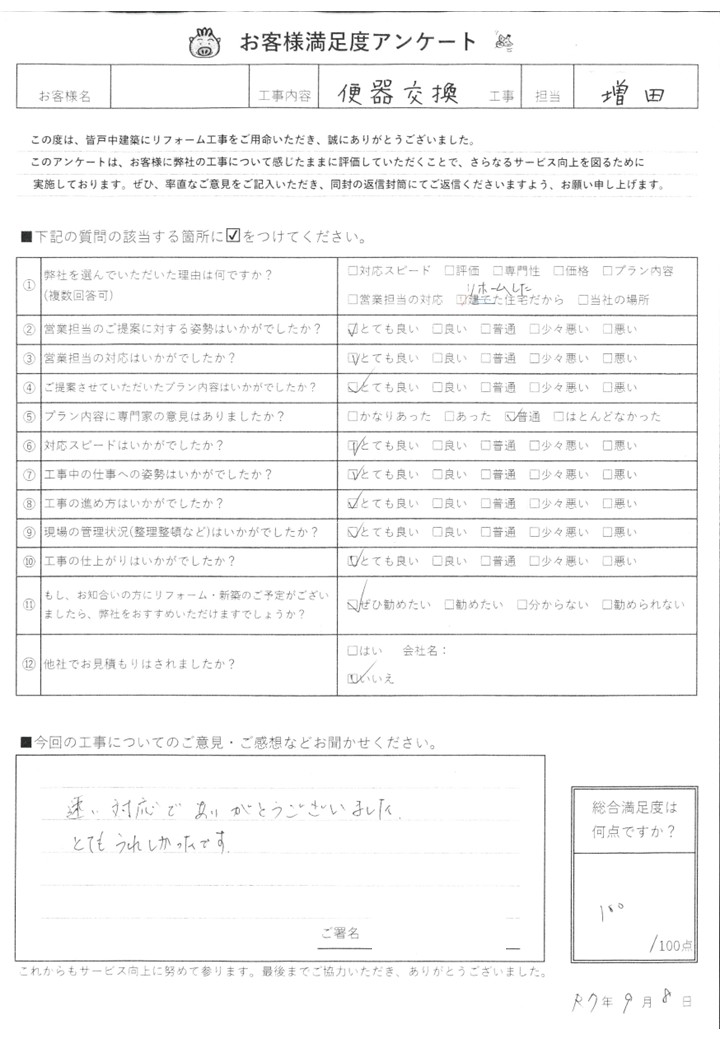 お客様満足度アンケート
お客様名 工事内容 便器交換 工事 担当 増田
この度は、皆戸中建築にリフォーム工事をご用命いただき、誠にありがとうございました。
このアンケートは、お客様に弊社の工事について感じたままに評価していただくことで、さらなるサービス向上を図るために
実施しております。ぜひ、率直なご意見をご記入いただき、同封の返信封筒にてご返信くださいますよう、お願い申し上げます。
■下記の質問の該当する箇所に☑をつけてください。
① 弊社を選んでいただいた理由は何ですか？
(複数回答可)
□対応スピード □評価 □専門性 □価格 □プラン内容
リホームした
□営業担当の対応 ☑建てた住宅だから □当社の場所
② 営業担当のご提案に対する姿勢はいかがでしたか？ ☑とても良い □良い □普通 □少々悪い □悪い
③ 営業担当の対応はいかがでしたか？ ☑とても良い □良い □普通 □少々悪い □悪い
④ ご提案させていただいたプラン内容はいかがでしたか？ ☑とても良い □良い □普通 □少々悪い □悪い
⑤ プラン内容に専門家の意見はありましたか？ □かなりあった □あった ☑普通 □ほとんどなかった
⑥ 対応スピードはいかがでしたか？ ☑とても良い □良い □普通 □少々悪い □悪い
⑦ 工事中の仕事への姿勢はいかがでしたか？ ☑とても良い □良い □普通 □少々悪い □悪い
⑧ 工事の進め方はいかがでしたか？ ☑とても良い □良い □普通 □少々悪い □悪い
⑨ 現場の管理状況(整理整頓など)はいかがでしたか？ ☑とても良い □良い □普通 □少々悪い □悪い
⑩ 工事の仕上がりはいかがでしたか？ ☑とても良い □良い □普通 □少々悪い □悪い
⑪ もし、お知合いの方にリフォーム・新築のご予定がござい
ましたら、弊社をおすすめいただけますでしょうか？
☑ぜひ勧めたい □勧めたい □分からない □勧められない
⑫ 他社でお見積もりはされましたか？
□はい 会社名：
☑いいえ
■今回の工事についてのご意見・ご感想などお聞かせください。
速い対応でありがとうございました。
とてもうれしかったです。
ご署名
総合満足度は
何点ですか？
100
/100点
これからもサービス向上に努めて参ります。最後までご協力いただき、ありがとうございました。
R7年 9月 8日